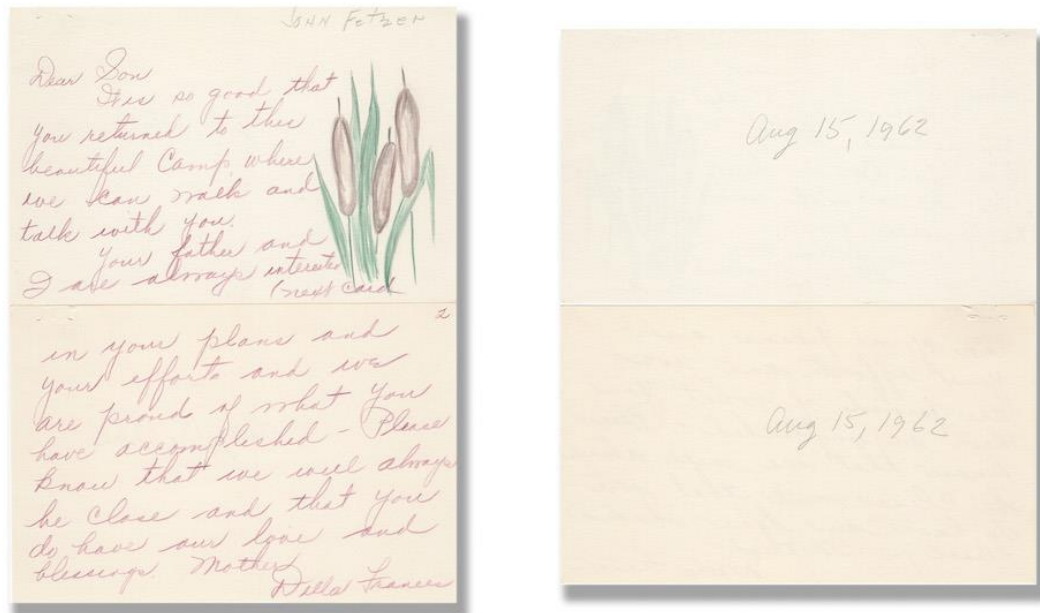 JOHN FETZER
Dear Son
It is so good that
you returned to this
beautiful Camp where
we can walk and
talk with you.
Your father and
I are always interested
(next card
2
in your plans and
your efforts and we
are proud of what you
have accomplished - Please
know that we will always
be close and that you
do have our love and
blessings. Mother
Della Frances
Aug 15, 1962
Aug 15, 1962